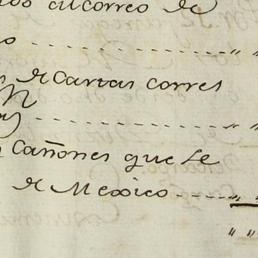 al correo de
o ........ " "
de Cartas corres
........ " "
Cañones que se
de Mexico .... "
" "